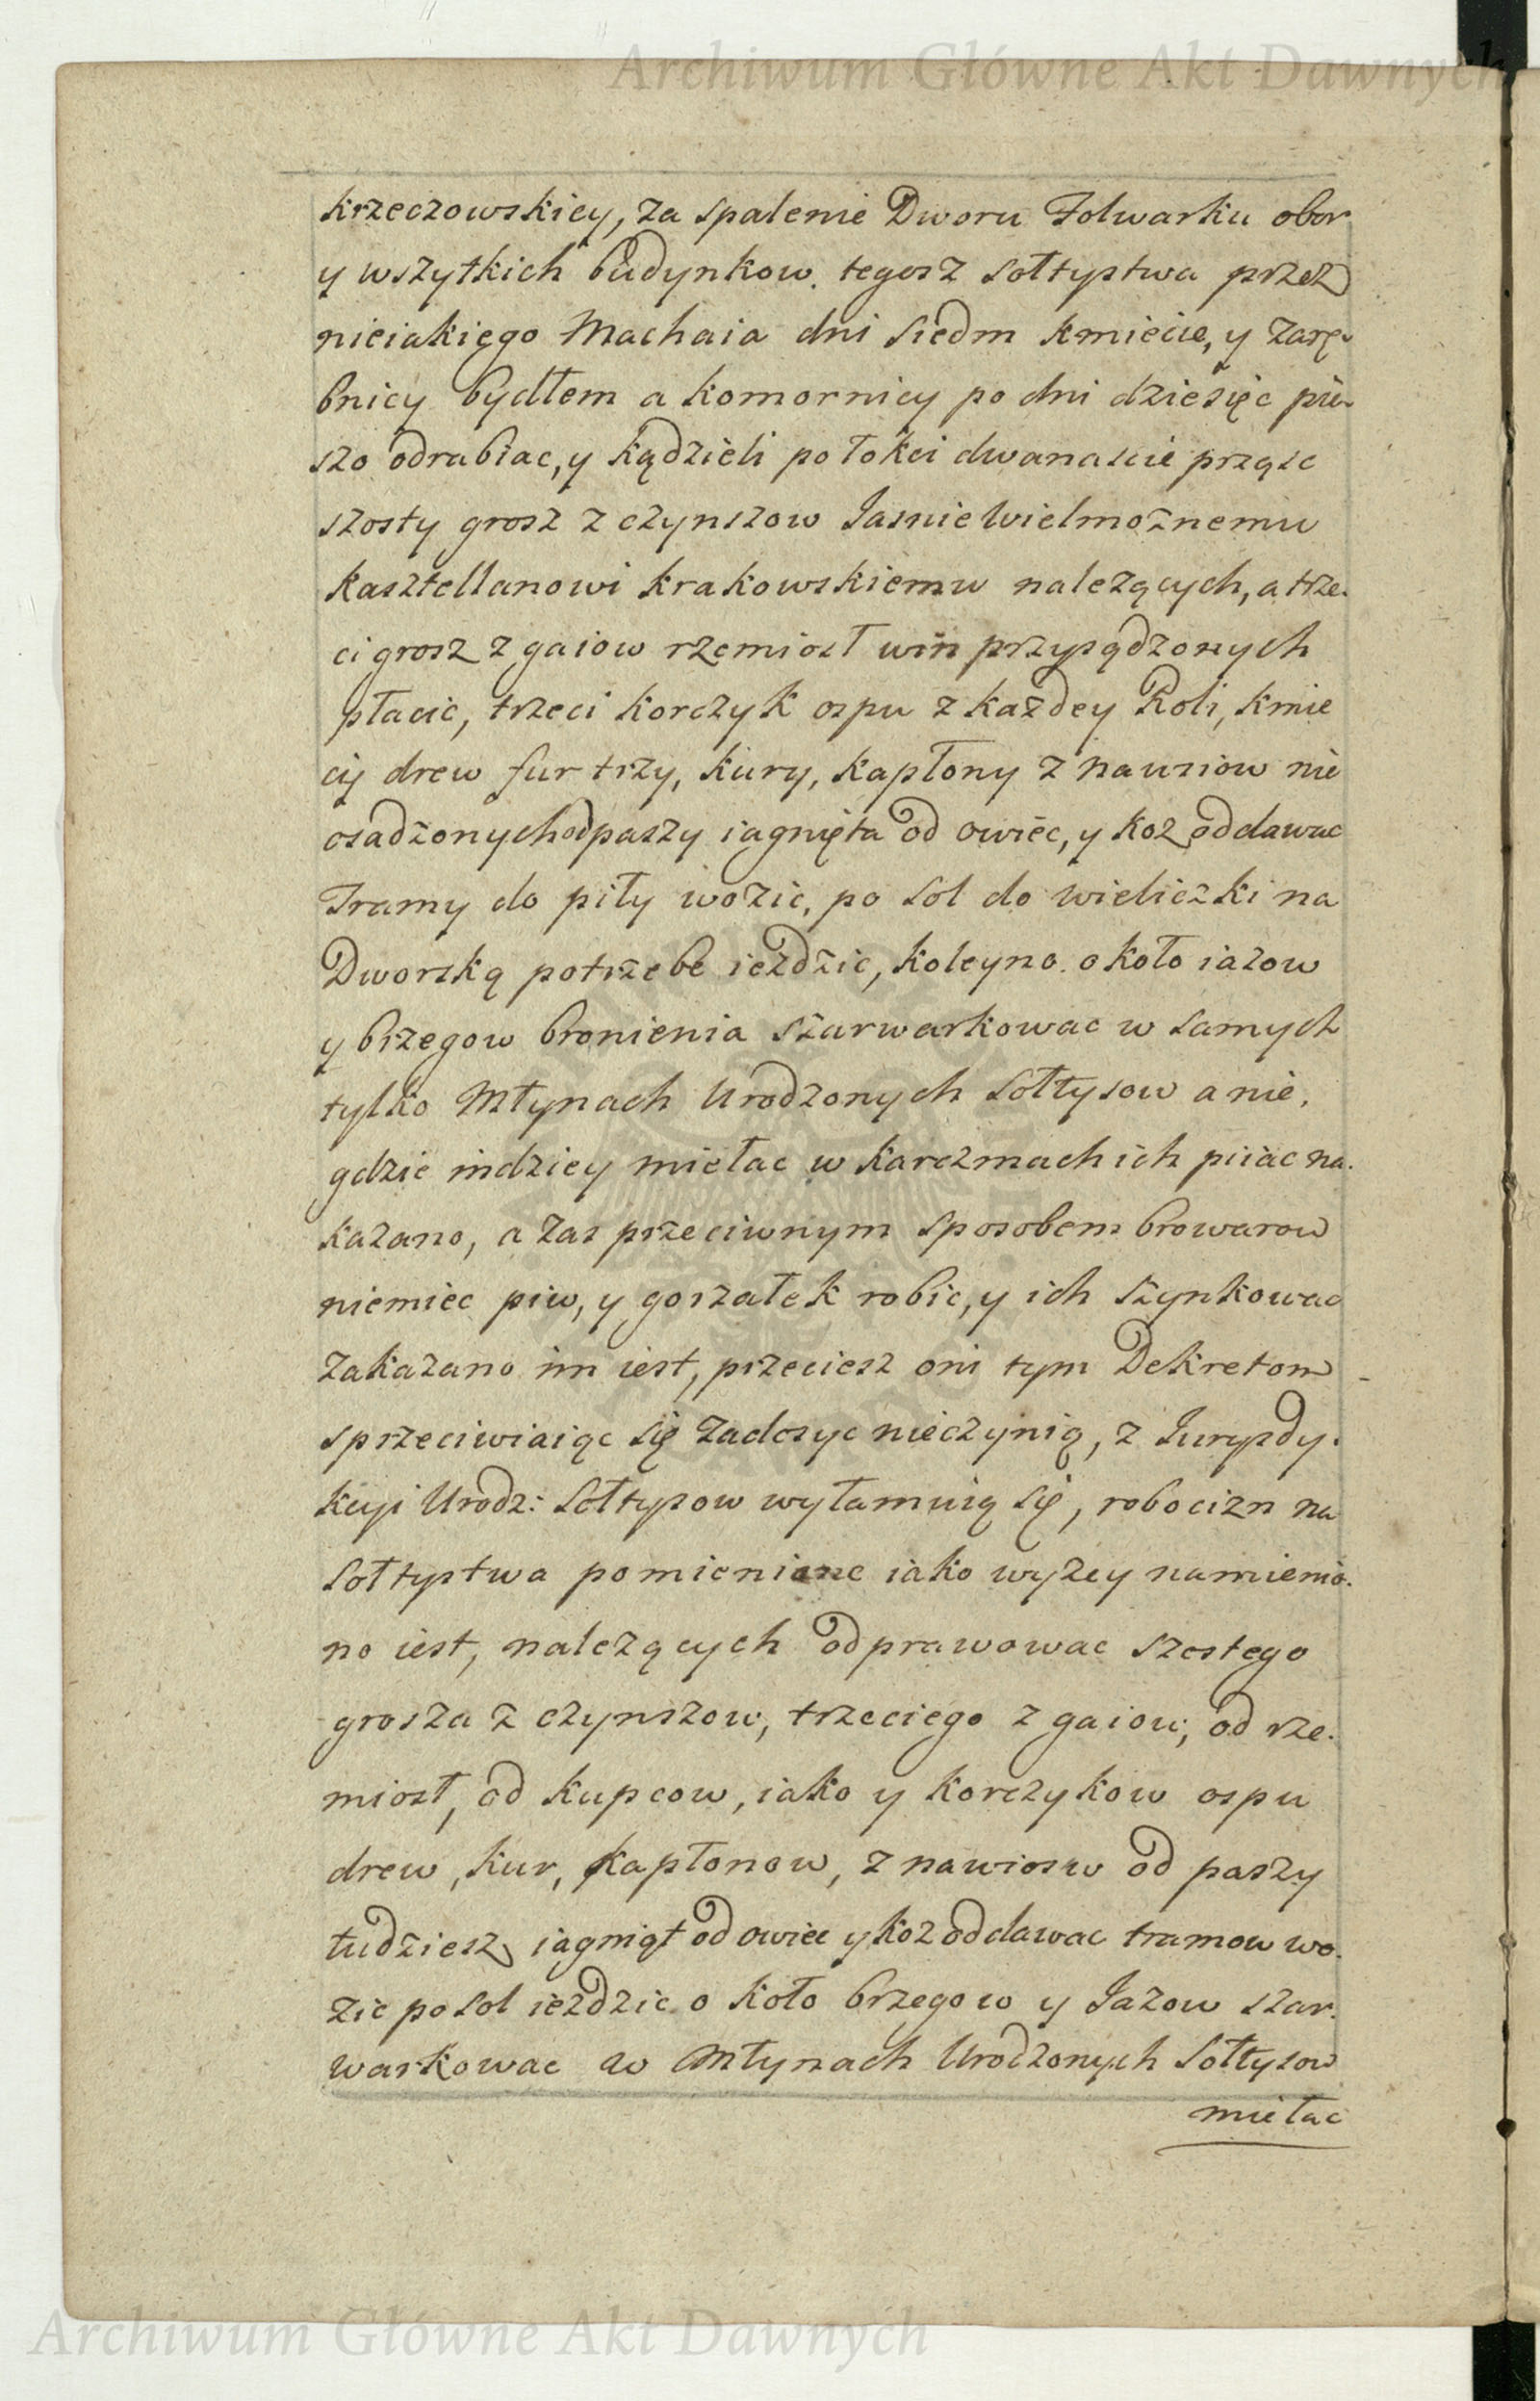 Archiwum Główne Akt Dawnych
krzeczowskiey, za spalenie Dworu Folwarku obor
y wszytkich budynkow tegosz sołtystwa przez
nieiakiego Machaia dni siedm kmiecie, y zarę-
bnicy bydłem a komornicy po dni dziesięc pie-
szo odrabiac, y kądzieli po łokci dwanascie prząsc
szosty grosz z czynszow Jasnie Wielmoznemu
kasztellanowi krakowskiemu nalezących, a trze-
ci grosz z gaiow rzemiosł win przysądzonych
płacic, trzeci korczyk ospu z kazdey Roli, kmie
cij drew fur trzy, kury, kapłony z nawsiow nie
osadzonych od paszy iagnięta od owiec, y koz oddawac
Tramy do piły wozic, po sol do wieliczki na
Dworską potrzebe iezdzic, koleyno około iazow
y brzegow bronienia szarwarkowac w samych
tylko Młynach Urodzonych Sołtysow a nie,
gdzie indziey miełac w karczmach ich piiac na-
kazano, a zas przeciwnym sposobem browarow
niemiec piw, y gorzałek robic, y ich szynkowac
zakazano im iest, przeciesz oni tym Dekretom
sprzeciwiaiąc się zadosyc nieczynią, z Jurysdy-
kcyi Urodz: Sołtysow wyłamuią się, robocizn na
sołtystwa pomienione iako wyzey namienio-
no iest, nalezących odprawowac szostego
grosza z czynszow, trzeciego z gaiow, od rze-
miosł, od kupcow, iako y korczykow ospu
drew, kur, kapłonow, z nawiosw od paszy
tudziesz iagniąt od owiec y koz oddawac tramow wo-
zic po sol iezdzic o koło brzegow y Jazow szar-
warkowac w Młynach Urodzonych Sołtysow
miełac
Archiwum Główne Akt Dawnych